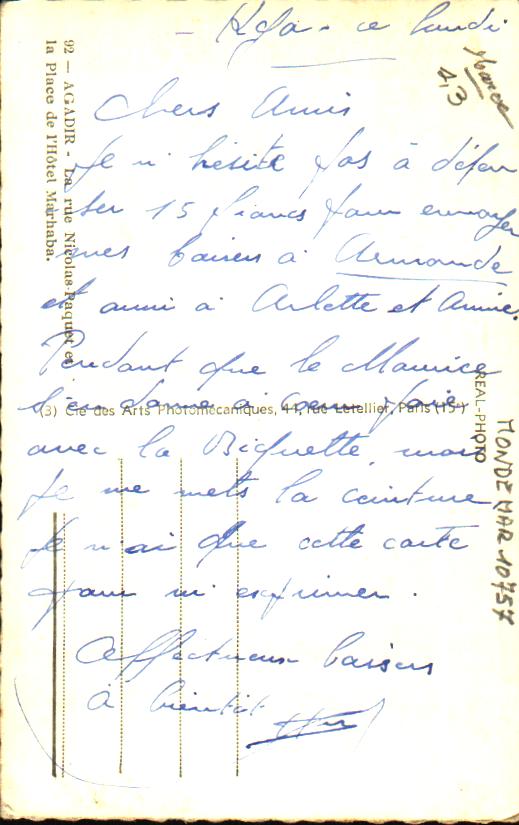 ce lundi
Maroc
4,3
Chers Amis
Je n'hésite pas à dépen
ser 15 francs pour envoyer
mes baisers à Armande
et aussi à Arlette et Annie.
Pendant que le Maurice
avec la Biquette, moi
Je me mets la ceinture
Je n'ai que cette carte
pour m'exprimer.
Affectueux baisers
à bientôt
92 — AGADIR - La rue Nicolas-Paquet et
la Place de l'Hôtel Marhaba.
(3) Cie des Arts Photomécaniques, 44, rue Letellier, Paris (15e)
REAL-PHOTO
MONDE MAR 10757